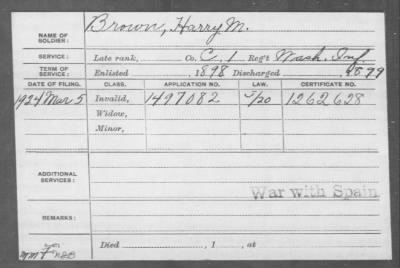 NAME OF SOLDIER: Brown, Harry M.
SERVICE: Late rank, Co. C, 1 Reg't Wash. Inf.
TERM OF SERVICE: Enlisted , 1898 Discharged , 1899
DATE OF FILING. CLASS. APPLICATION NO. LAW. CERTIFICATE NO.
1924 Mar 5 Invalid, 1497082 1262628
Widow,
Minor,
ADDITIONAL SERVICES:
War with Spain
REMARKS:
Died , 1 , at